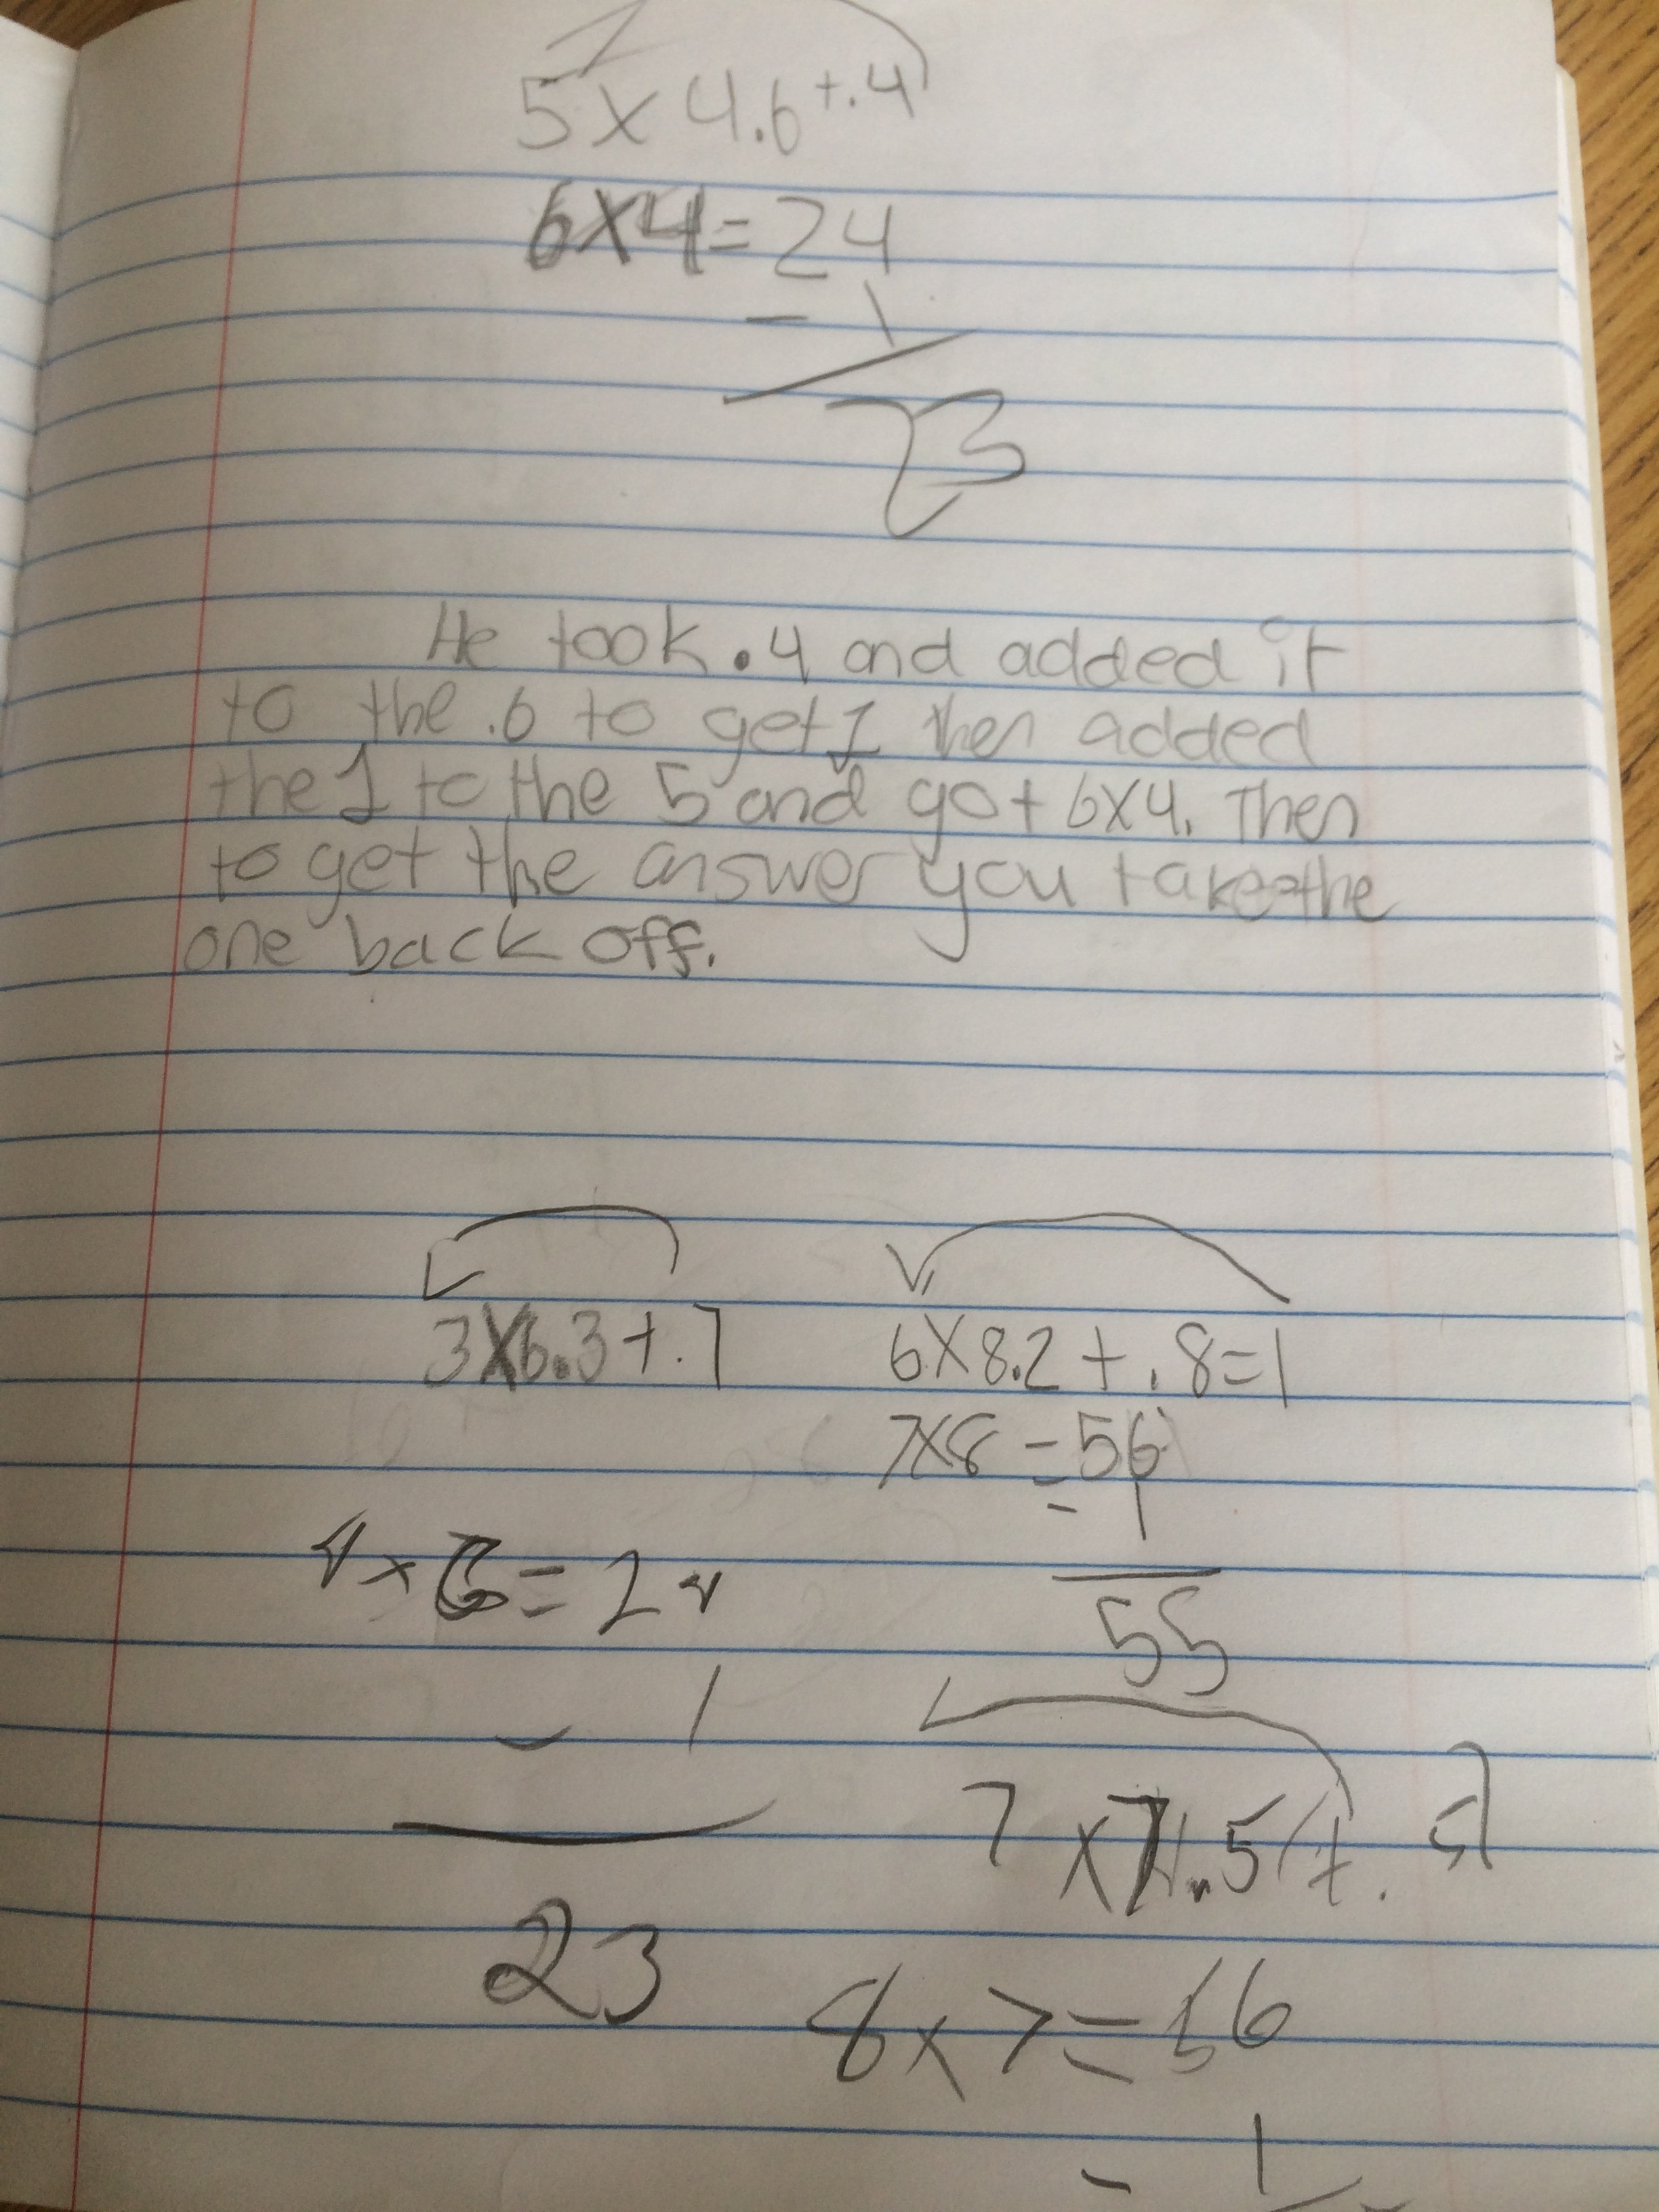 5 x 4.6 +.4
6x4=24
- 1
23
He took .4 and added it
to the .6 to get 1 then added
the 1 to the 5 and got 6x4. Then
to get the answer you take the
one back off.
3x6.3+.7
4x6=24
- 1
23
6x8.2+.8=1
7x8=56
- 1
55
7x7.5+.5
8x7=56
- 1